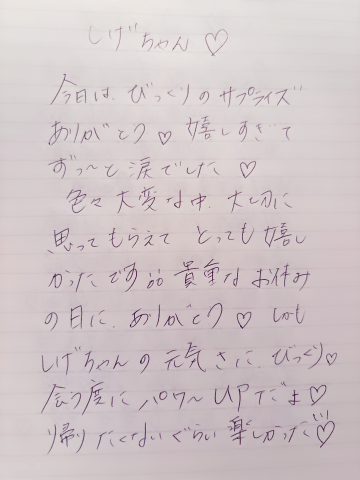 しげちゃん♡
今日は、びっくりのサプライズ
ありがとう♡ 嬉しすぎて
ずっ〜と涙でした♡
色々大変な中、大切に
思ってもらえて とっても嬉し
かったです 貴重なお休み
の日に、ありがとう♡ しかも
しげちゃんの元気さに、びっくり♡
会う度にパワーUPだま♡
帰りたくないぐらい楽しかった♡